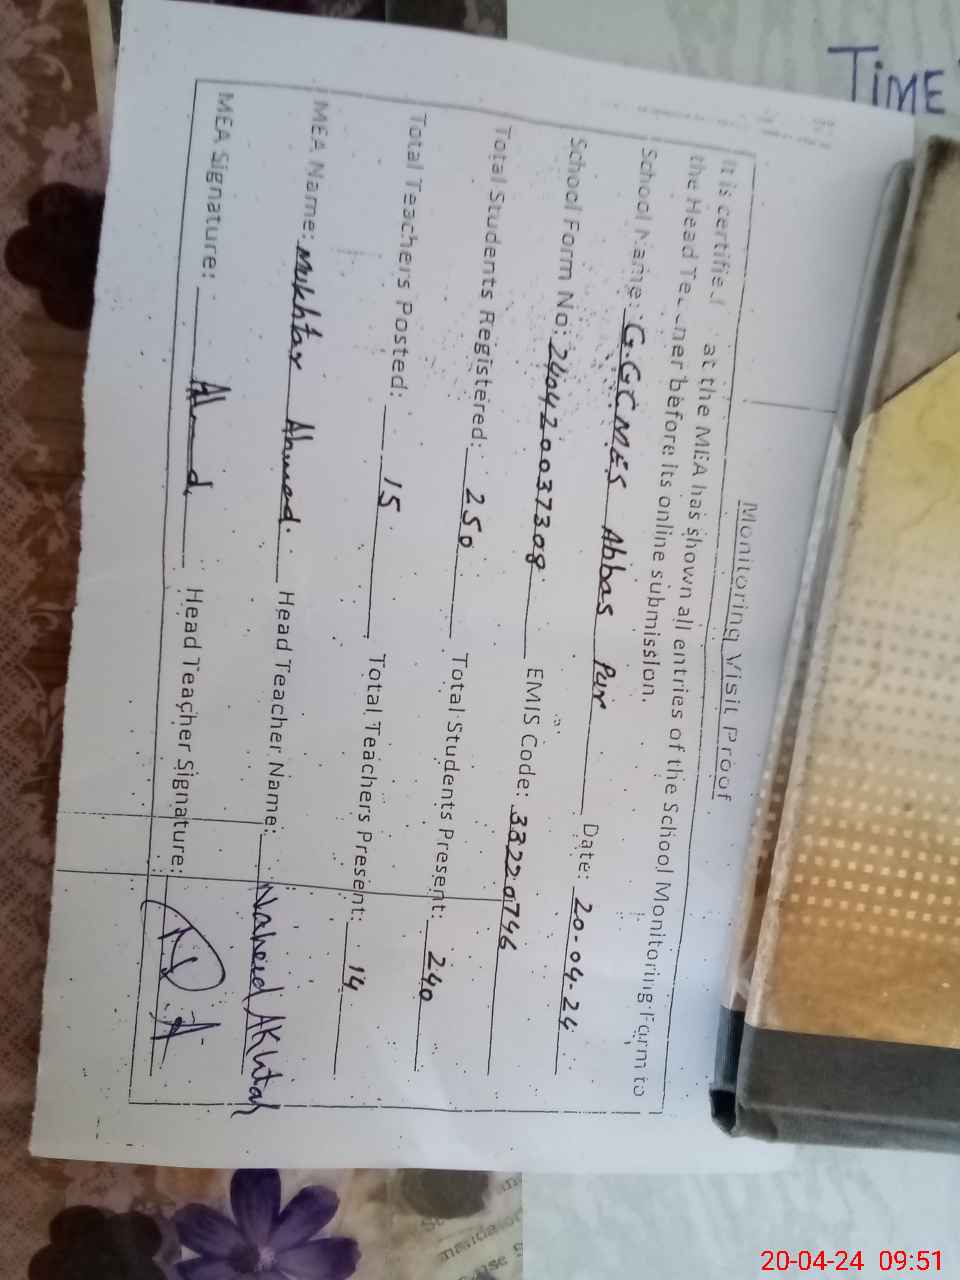 TIME
Monitoring Visit Proof
It is certified at the MEA has shown all entries of the School Monitoring Form to
the Head Teacher before its online submission.
School Name: G.GCMES Abbas Pur Date: 20-04-24
School Form No: 240420037308 EMIS Code: 33220746
Total Students Registered: 250 Total Students Present: 240
Total Teachers Posted: 15 Total Teachers Present: 14
MEA Name: Mukhtar Ahmed. Head Teacher Name: Naheid AKhtar
MEA Signature: Head Teacher Signature:
20-04-24 09:51